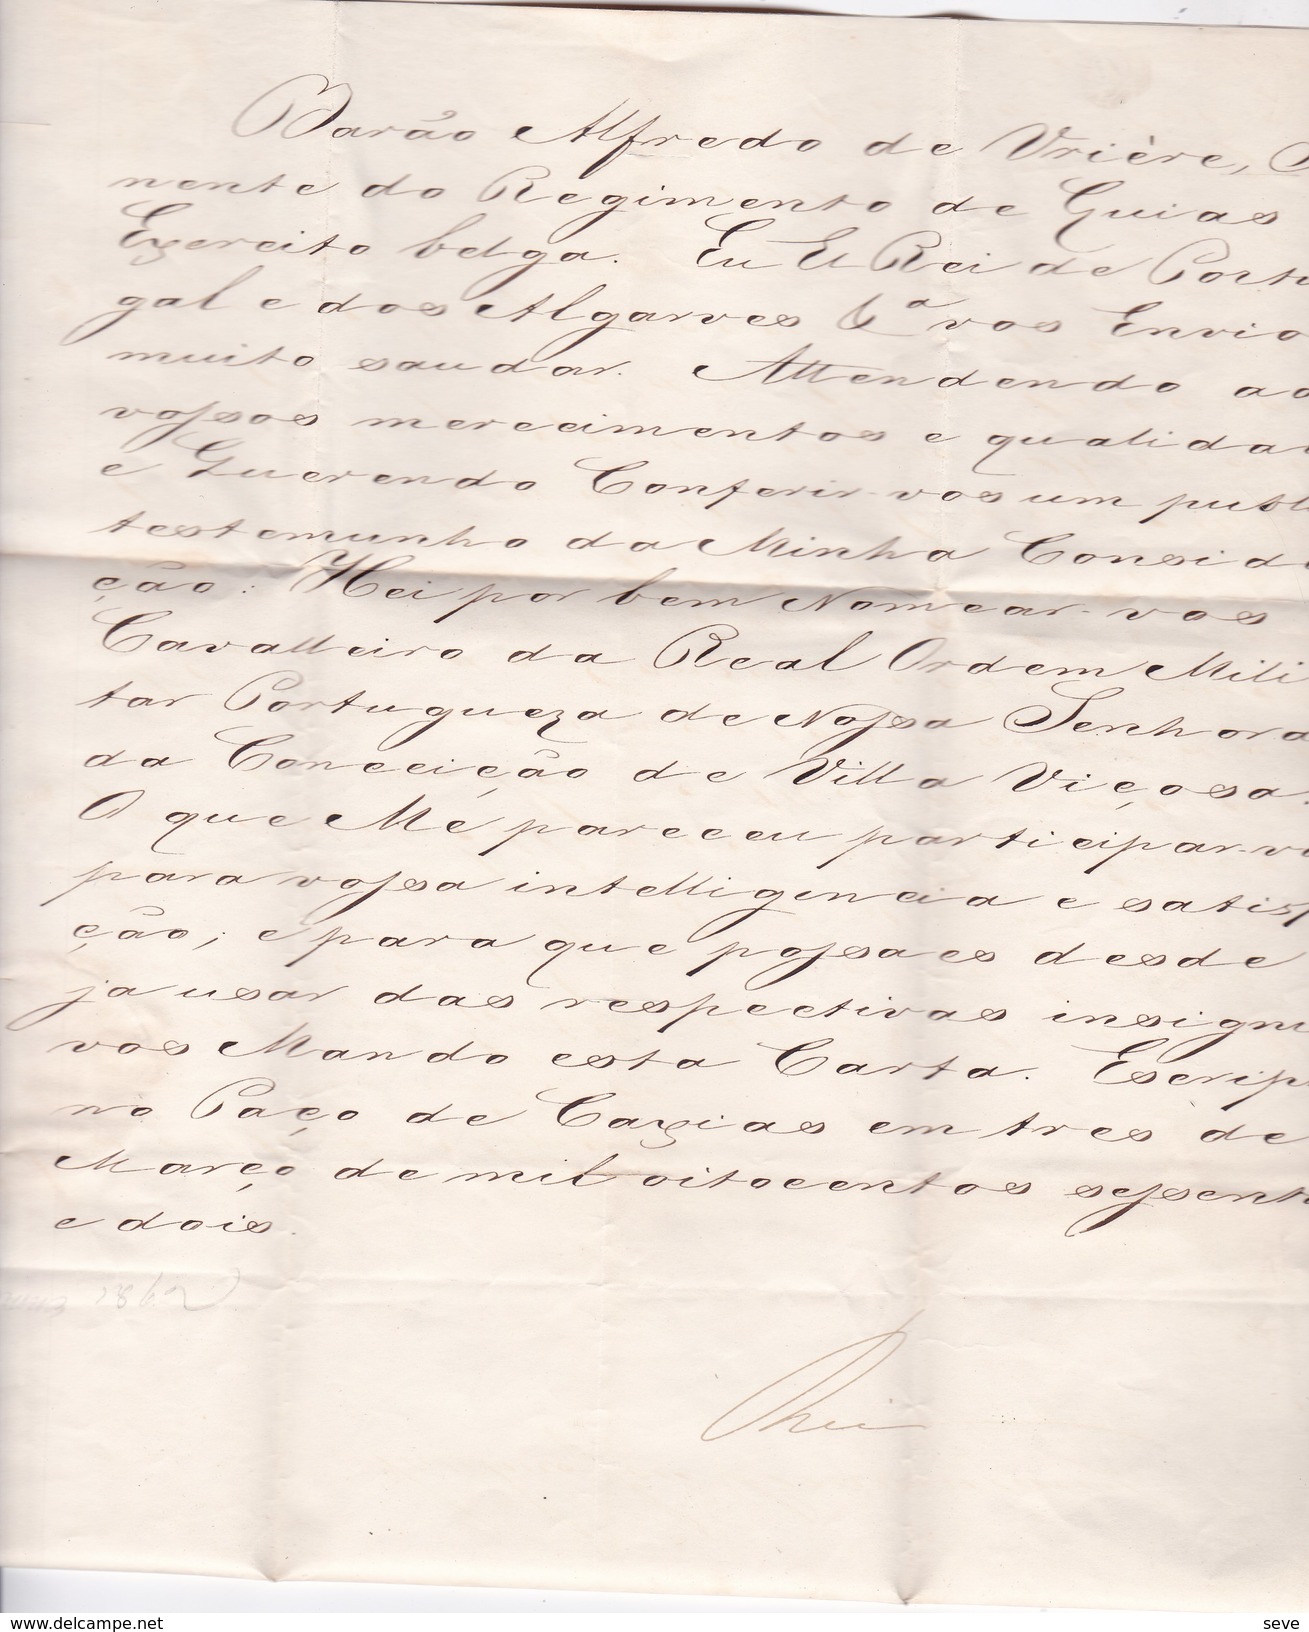 Barão Alfredo de Vrière,
nente do Regimento de Guias
Exercito belga. Eu El Rei de Portu
gal e dos Algarves &ª vos Envio
muito saudar. Attendendo ao
vossos merecimentos e qualida
e Querendo Conferir-vos um publ
testemunho da Minha Consid
ção: Hei por bem Nomear-vos
Cavalleiro da Real Ordem Mili
tar Portugueza de Nossa Senhora
da Conceição de Villa Viçosa.
O que Me pareceu participar-v
para vossa intelligencia e satisf
ção; e para que possaes desde
ja usar das respectivas insign
vos Mando esta Carta. Escrip
no Paço de Caxias em tres de
Março de mil oitocentos sessent
e dois.
1862
Rei
www.delcampe.net
seve